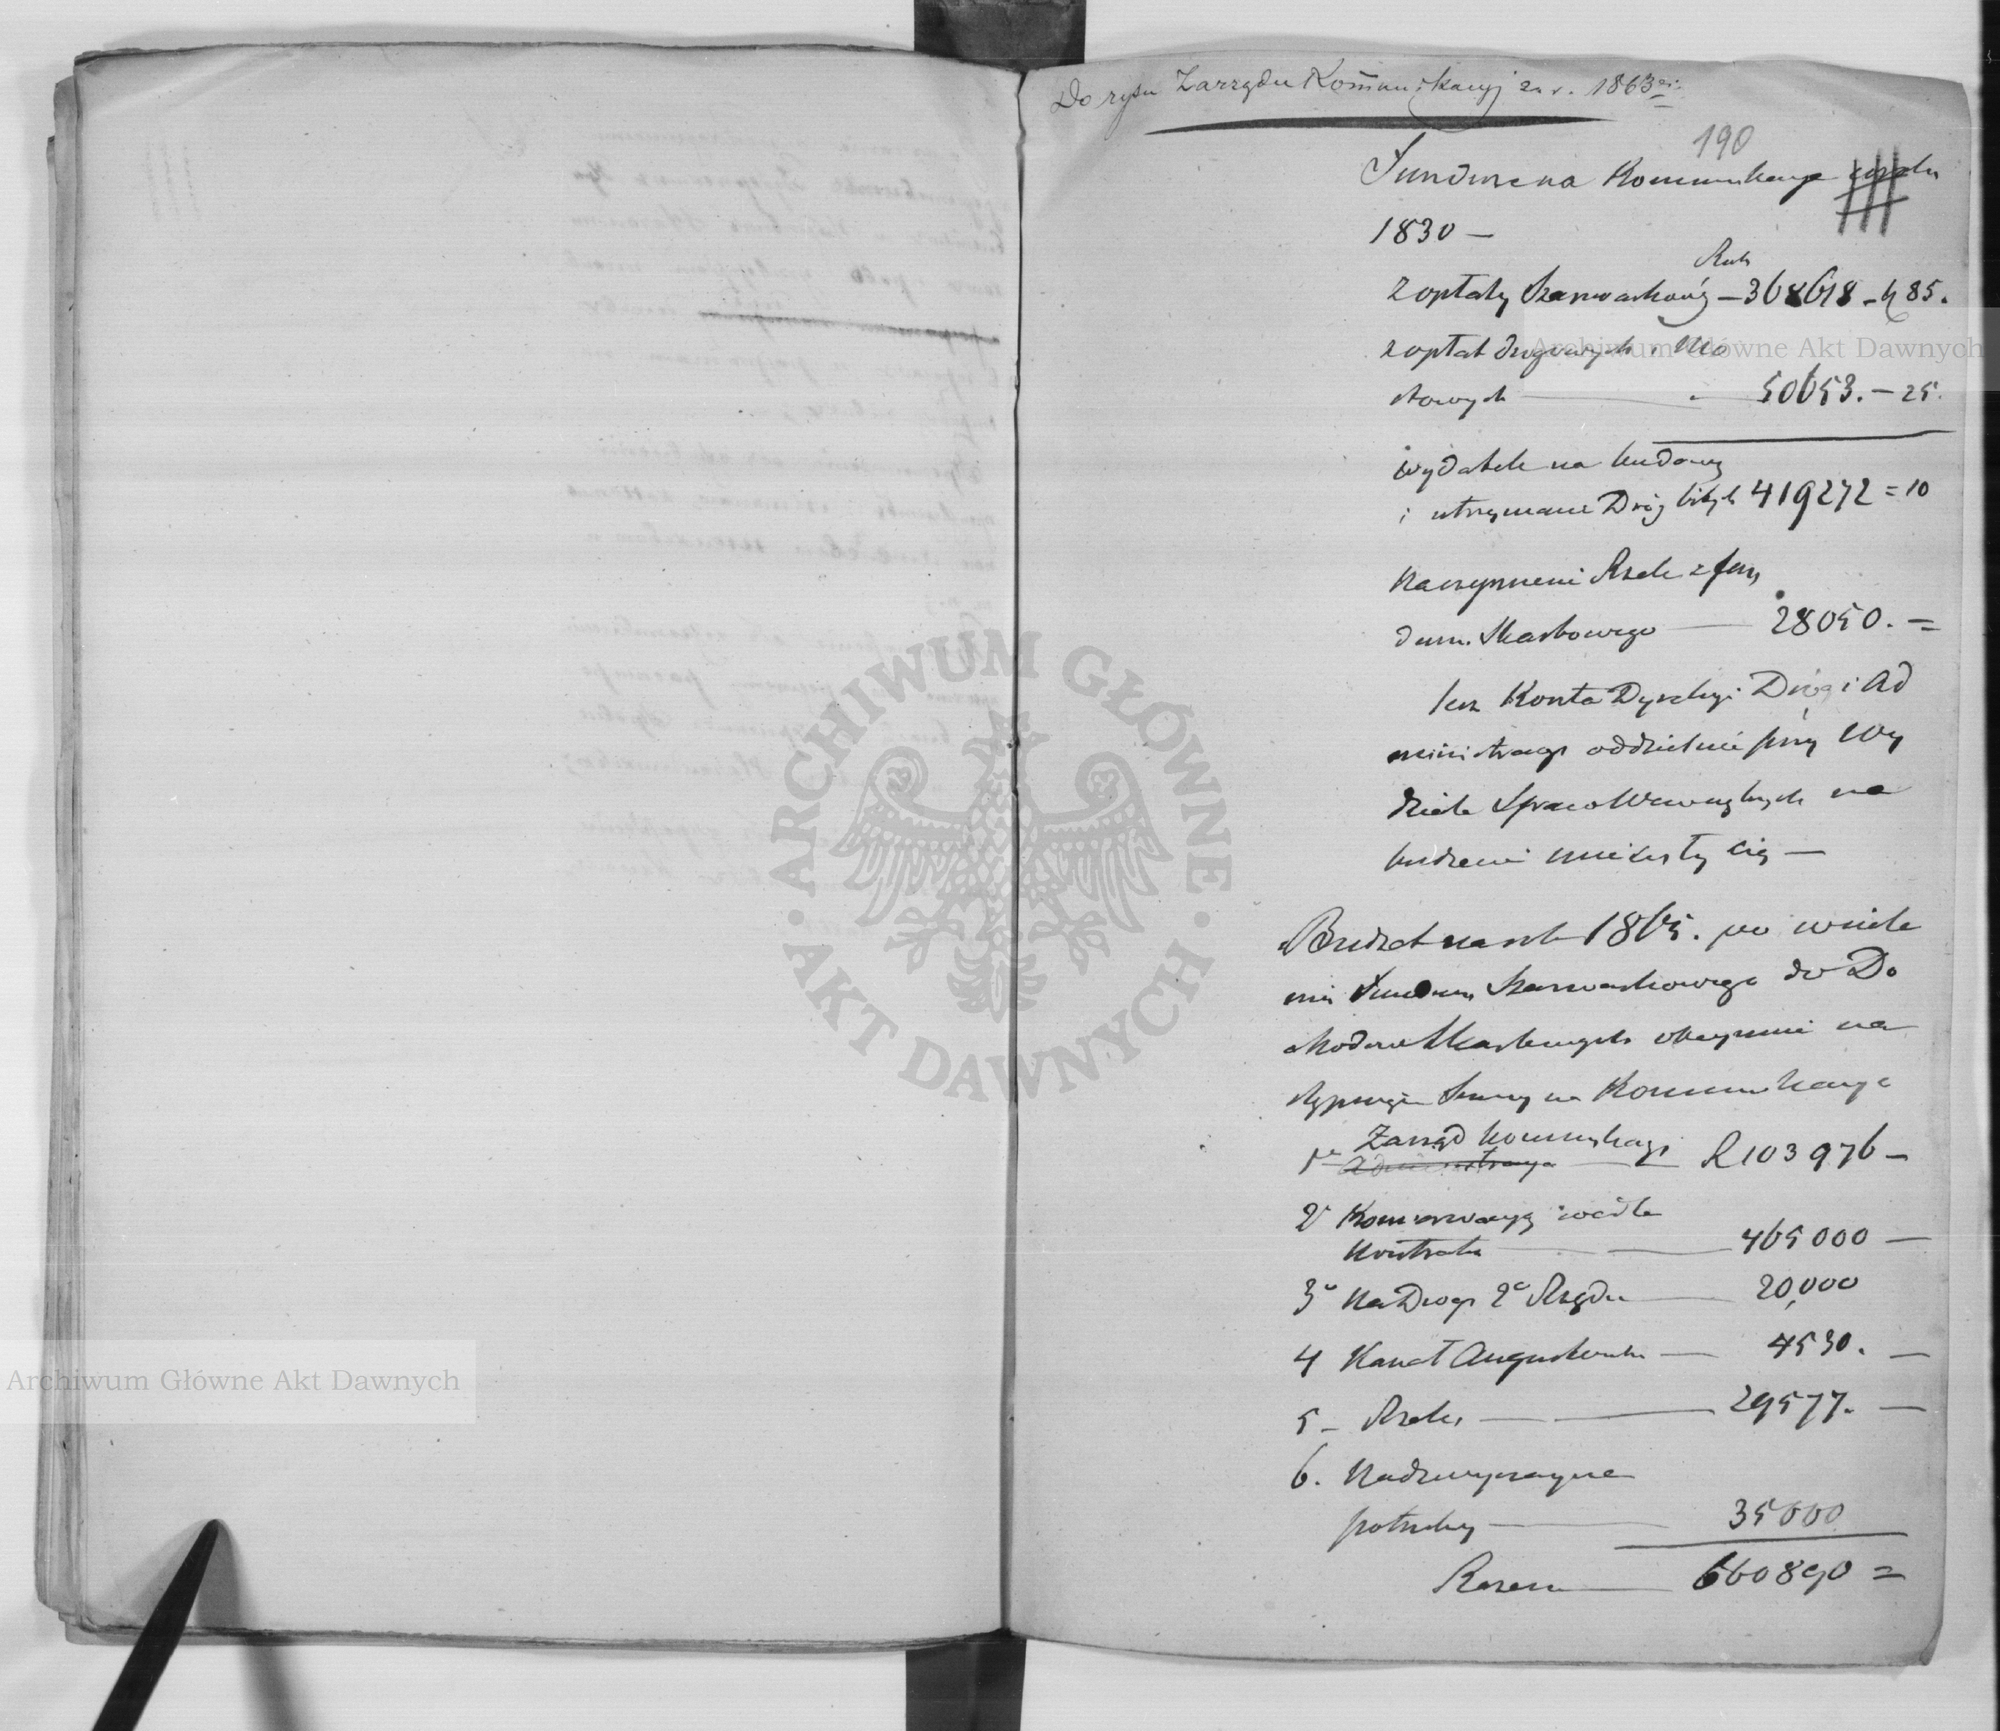 Do rysu Zarządu Kom̄unikacyj za r. 1863
190
Fundusz na Komunikacje
1830 —
Rub
z opłaty Szarwarkowéj — 368618 - k 85.
z opłat drogowych i Mo
stowych — 50653. — 25.
wydatek na budowę
i utrzymanie Dróg bitych 419272 = 10
Na czyszczenie Rzek z fun
dusz. Skarbowego — 28050. =
Konta Dyrekcyi Dróg i Ad
ministracyi oddzielnie przy Wy
dziale Spraw Wewnętrznych na
mieściły się —
Budżet na rok 1865. po wciele
niu Funduszu Szarwarkowego do Do
chodów Skarbowych obejmuje na
stępujące Sumy na Komunikacje
1° Zarząd Komunikacyi — R 103976 —
Administracya
2° Konserwacya wedle
Kontraktu — 465000 —
3° Na Drogi 2° Rzędu — 20,000
4 Kanał Augustowski — 4530. —
5 — Rzeki — 29577. —
6. Nadzwyczajne
potrzeby — 35000
Razem — 660890 =
ARCHIWUM GŁÓWNE AKT DAWNYCH
Archiwum Główne Akt Dawnych
Archiwum Główne Akt Dawnych